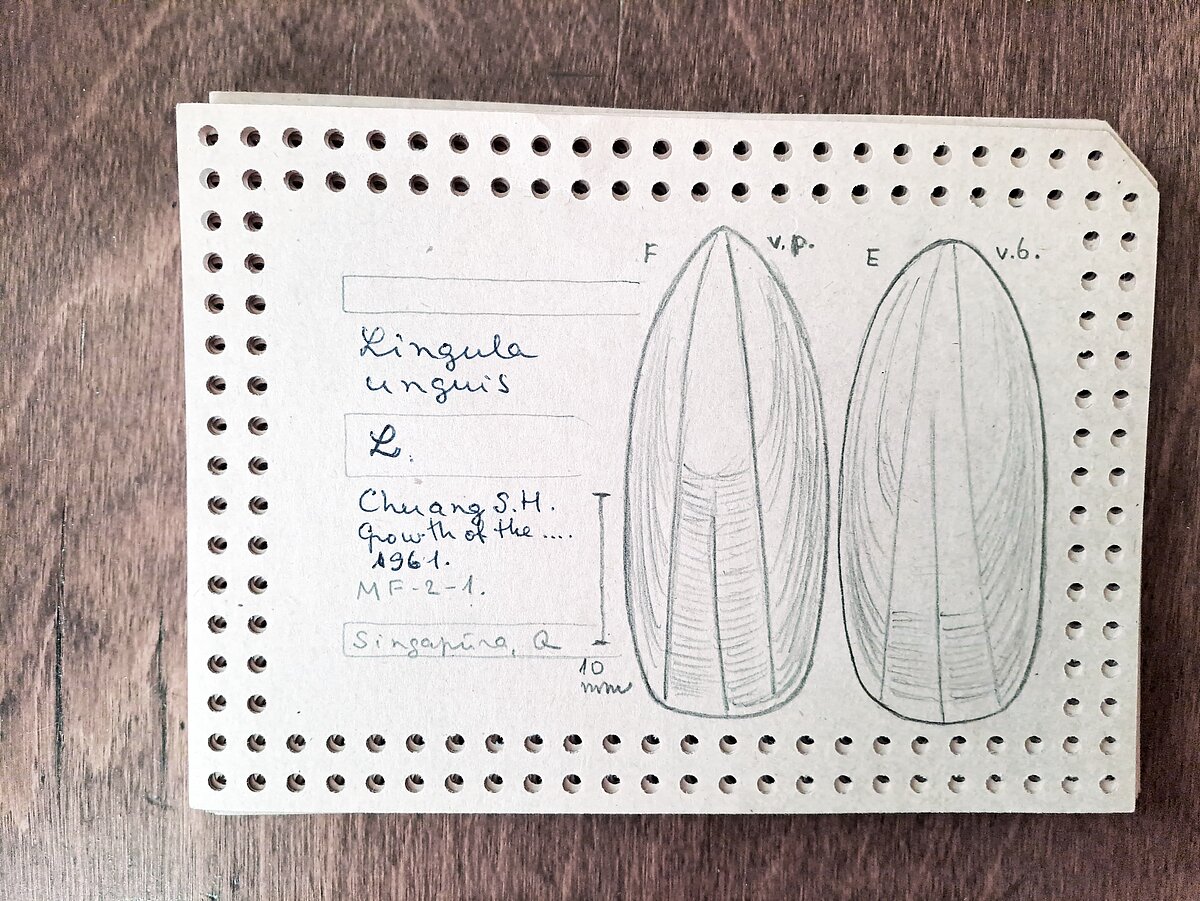 Lingula
unguis
L.
Chuang S.H.
Growth of the ....
1961.
MF-2-1.
Singapūra, Q
10
mm
F
v.p.
E
v.b.